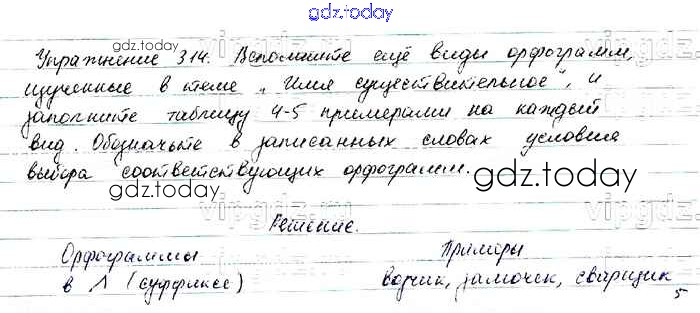 gdz.today
Упражнение 314. Вспомните ещё виды орфограмм,
gdz.today
изученные в теме „Имя существительное", и
заполните таблицу 4-5 примерами на каждый
вид. Обозначьте в записанных словах условия
выбора соответствующих орфограмм.
gdz.today
Решение.
Орфограммы Примеры
в ^ (суффиксе) водчик, замочек, сварщик
5